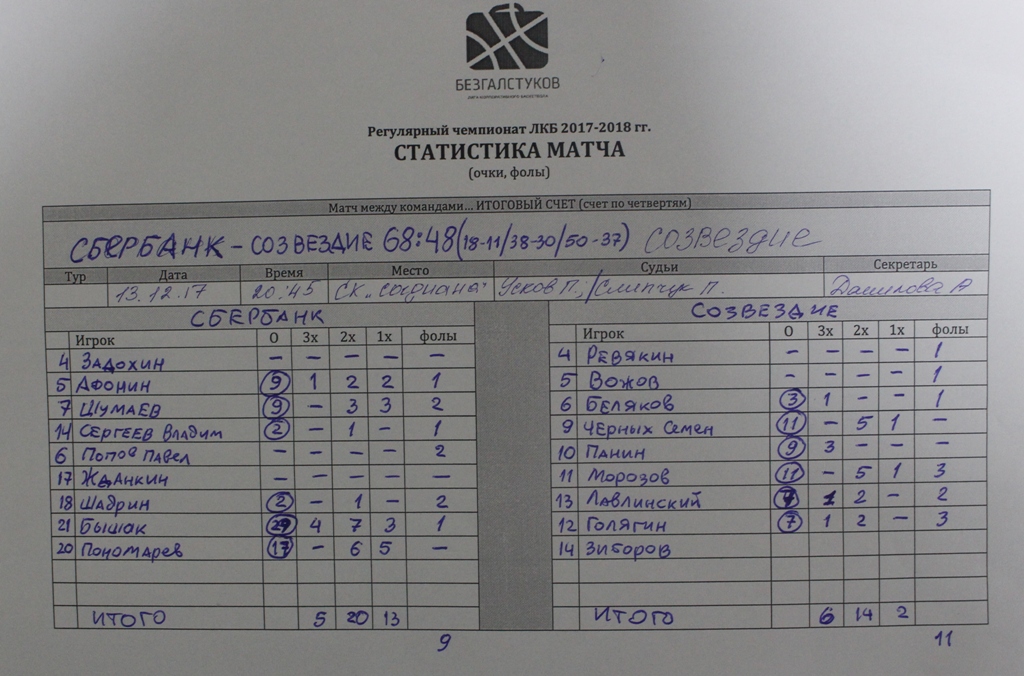 БЕЗГАЛСТУКОВ
ЛИГА КОРПОРАТИВНОГО БАСКЕТБОЛА
Регулярный чемпионат ЛКБ 2017-2018 гг.
СТАТИСТИКА МАТЧА
(очки, фолы)
Матч между командами... ИТОГОВЫЙ СЧЕТ (счет по четвертям)
СБЕРБАНК - СОЗВЕЗДИЕ 68:48 (18-11/38-30/50-37) СОЗВЕЗДИЕ
Тур Дата Время Место Судьи Секретарь
13.12.17 20:45 СК „Согдиана" Усков П., / Слипчук П. Данилова А
СБЕРБАНК СОЗВЕЗДИЕ
Игрок О 3х 2х 1х фолы Игрок О 3х 2х 1х фолы
4 ЗАДОХИН – – – – – 4 РЕВЯКИН – – – – 1
5 АФОНИН 9 1 2 2 1 5 ВОЖОВ – – – – 1
7 ШУМАЕВ 9 – 3 3 2 6 БЕЛЯКОВ 3 1 – – 1
14 СЕРГЕЕВ ВЛАДИМ 2 – 1 – 1 9 ЧЕРНЫХ СЕМЕН 11 – 5 1 –
6 ПОПОВ ПАВЕЛ – – – – 2 10 ПАНИН 9 3 – – –
17 ЖДАНКИН – – – – – 11 МОРОЗОВ 11 – 5 1 3
18 ШАДРИН 2 – 1 – 2 13 ЛАВЛИНСКИЙ 7 1 2 – 2
21 БЫШОК 29 4 7 3 1 12 ГОЛЯГИН 7 1 2 – 3
20 ПОНОМАРЕВ 17 – 6 5 – 14 ЗИБОРОВ
ИТОГО 5 20 13 ИТОГО 6 14 2
9 11